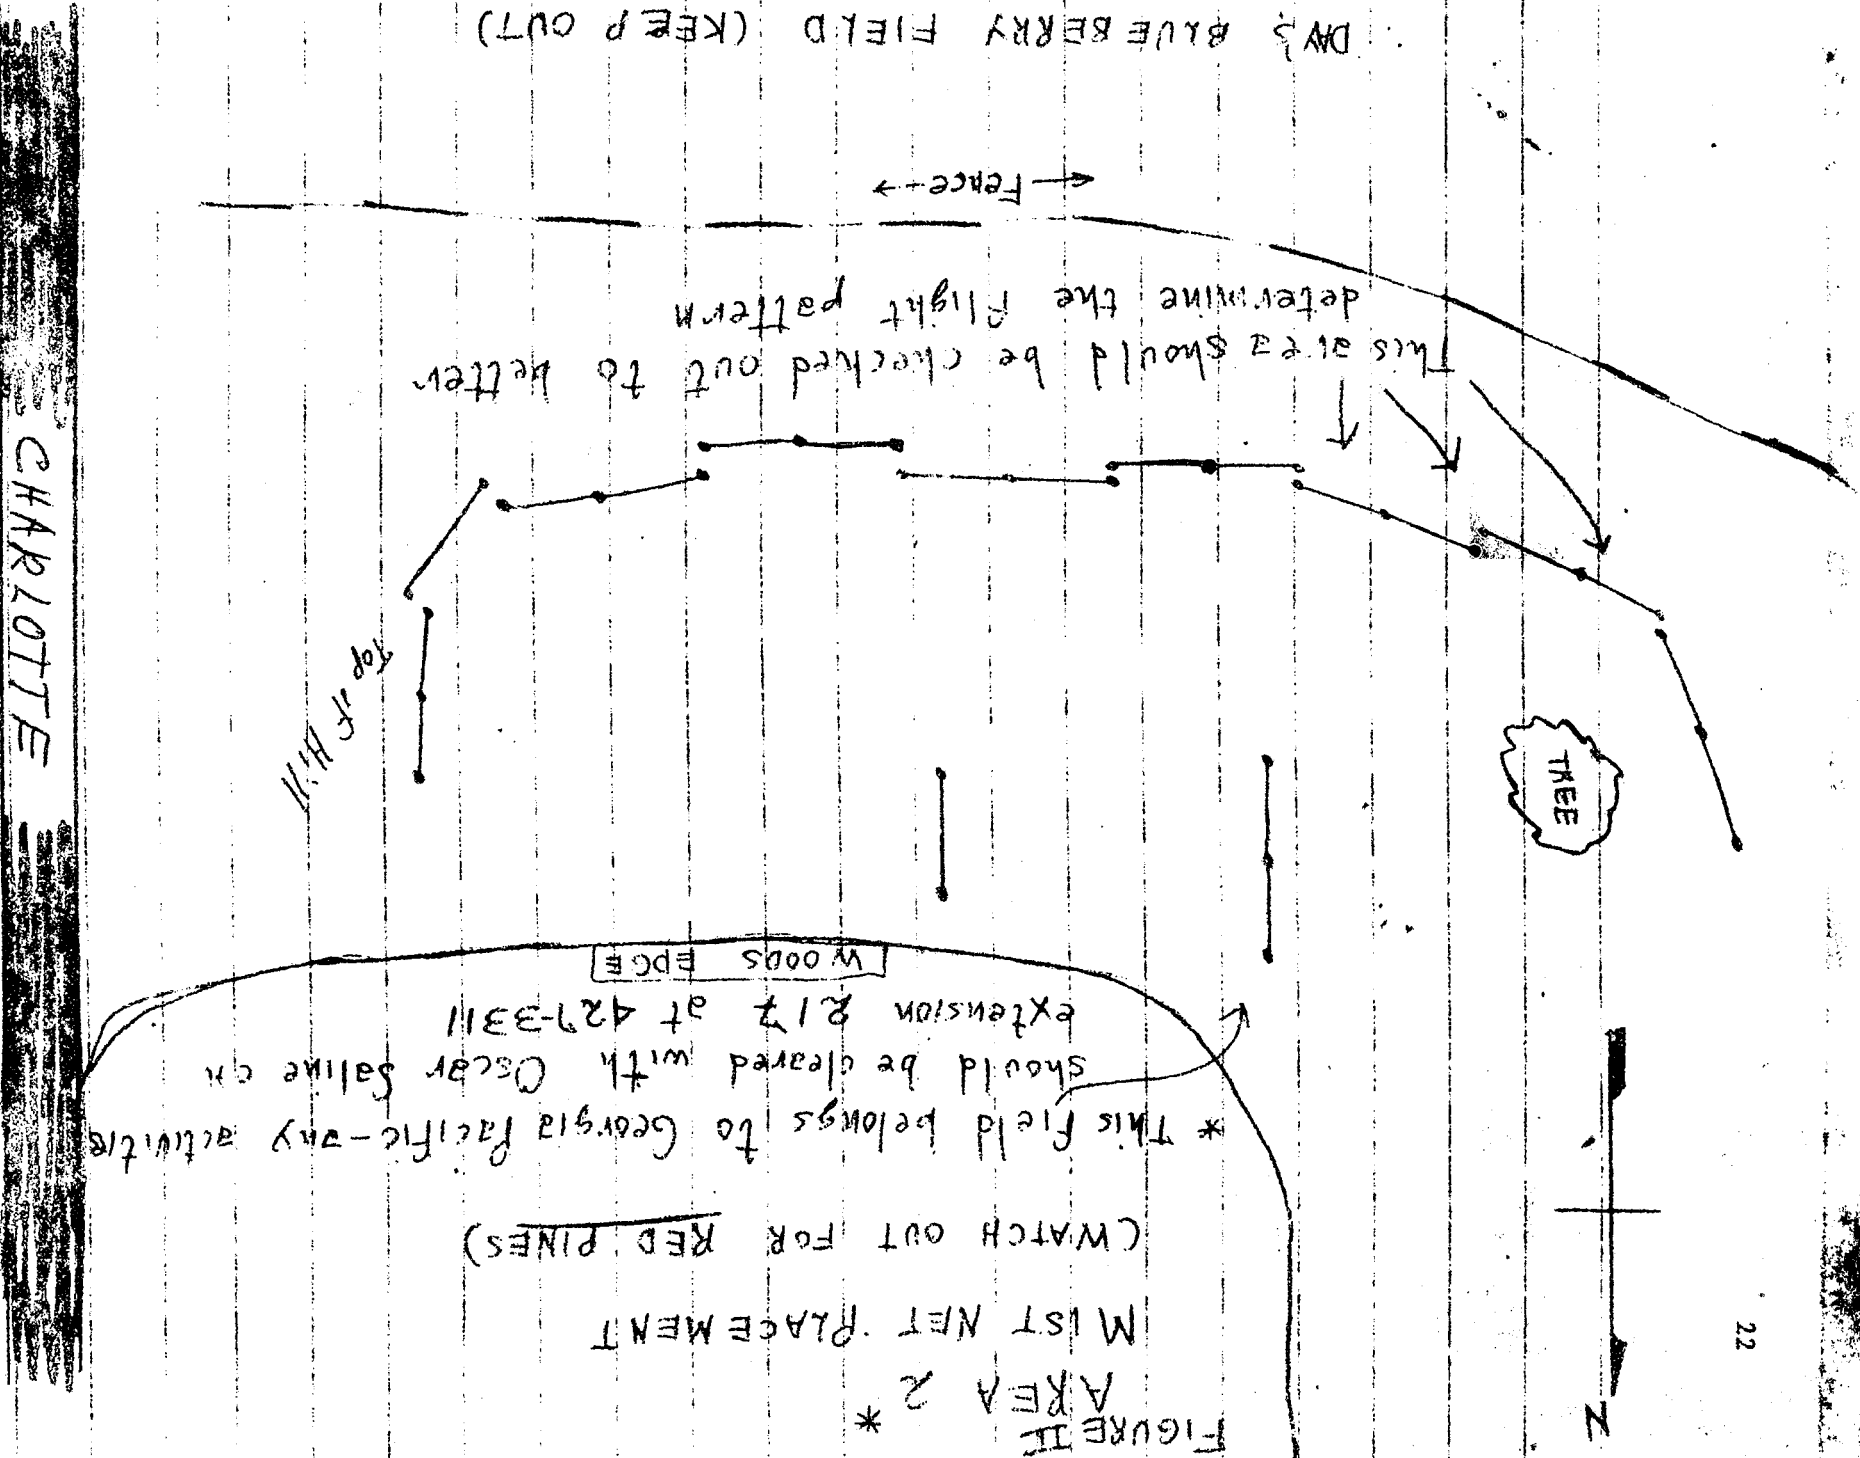 FIGURE II
AREA 2 *
MIST NET PLACEMENT
(WATCH OUT FOR RED PINES)
* This field belongs to Georgia Pacific-any activitis
should be cleared with Oscar Saline on
extension 217 at 427-3311
WOODS EDGE
N
22
TREE
Top of Hill
This area should be checked out to better
determine the flight pattern
← Fence →
BLUEBERRY FIELD (KEEP OUT)
CHARLOTTE